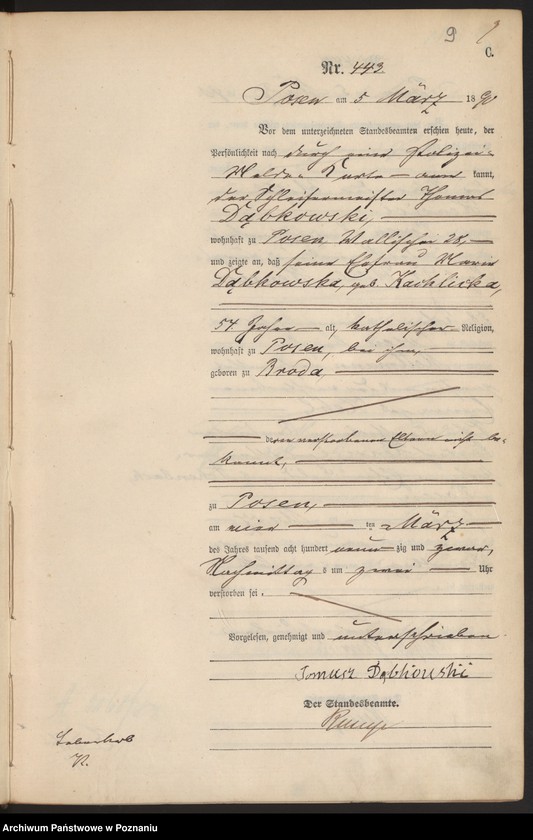 9
C.
Nr. 443.
Posen am 5 März 1890
Vor dem unterzeichneten Standesbeamten erschien heute, der
Persönlichkeit nach durch eine Polizei-
Melde-Karte – kannt,
der Schleifermeister Thomas
Dąbkowski,
wohnhaft zu Posen Wallischei 28,
und zeigte an, daß seine Ehefrau Maria
Dąbkowska, geb. Kachlicka,
54 Jahre – alt, katholischer Religion,
wohnhaft zu Posen, bei ihm,
geboren zu Broda,
deren verstorbenen Eltern nicht be-
kannt,
zu Posen,
am vier ten März
des Jahres tausend acht hundert neunzig und zwar,
Nachmittags um zwei Uhr
verstorben sei.
Vorgelesen, genehmigt und unterschrieben.
Tomusz Dąbkowski
Der Standesbeamte.
Archiwum Państwowe w Poznaniu